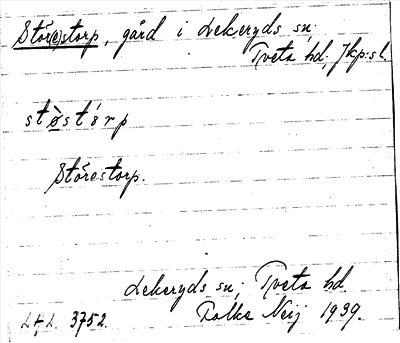 Stör(e)storp, gård i Lekeryds sn;
Tveta hd. Jkp:s l.
Störestorp.
Lekeryds sn; Tveta hd.
Folke Neij 1939.
3752.